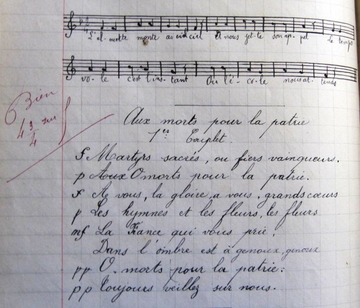 L'al-ouette monte au ciel Et nous jet-te son ap-pel le temps
vo-le c'est l'ins-tant Où l'é-co-le nous at-tend
Bien
Aux morts pour la patrie
1er Couplet.
F Martyrs sacrés, ou fiers vainqueurs.
p Aux O morts pour la patrie.
F A vous, la gloire, a vous, grands cœurs
p Les hymnes et les fleurs, les fleurs
mf La France qui vous prie.
Dans l'ombre est à genoux, genoux
pp O. morts pour la patrie.
pp toujours veillez sur nous.